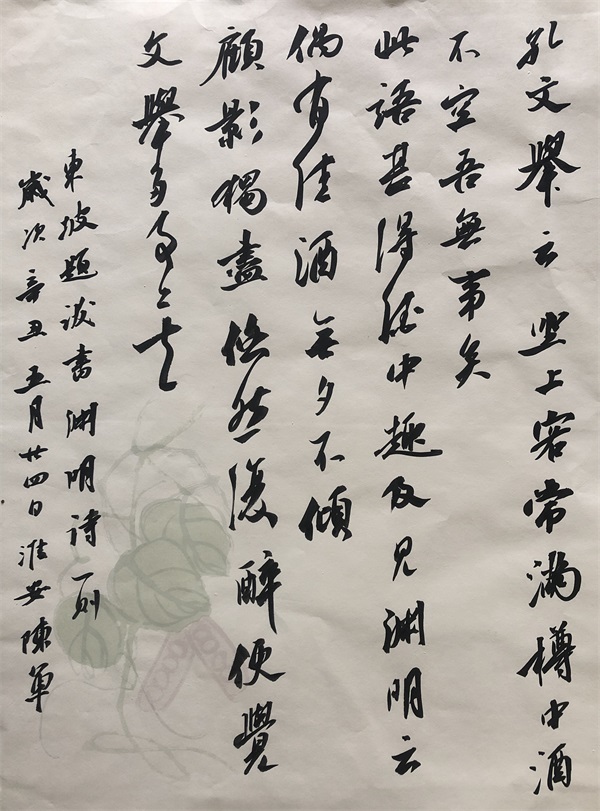 孔文舉云坐上客常滿樽中酒
不空吾無事矣
此語甚得酒中趣及見淵明云
偶有佳酒無夕不傾
顧影獨盡悠然復醉便覺
文舉多事矣
東坡題跋書淵明詩一則
歲次辛丑五月廿四日淮安陳軍